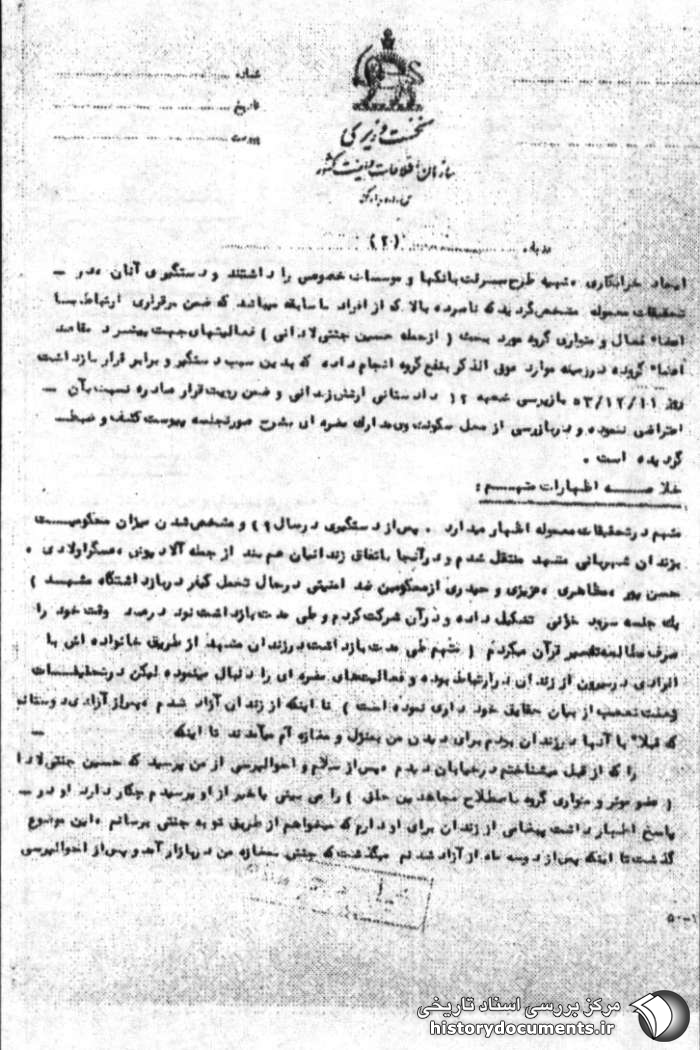 شماره
تاریخ
پیوست
نخست وزیری
سازمان اطلاعات و امنیت کشور
س.ا.و.ا.ک
درباره (۲)
ایجاد خرابکاری ، تهیه طرح سرقت بانکها و موسسات خصوصی را داشتند و دستگیری آنان ، در ـ
تحقیقات معموله مشخص گردید که نامبرده بالا که از افراد با سابقه میباشد که ضمن برقراری ارتباط با
اعضاء فعال و متواری گروه مورد بحث ( از جمله حسین جنتی لادانی ) فعالیتهای جهت پیشبرد مقاصد
اعضاء گروه در زمینه موارد فوق الذکر بنفع گروه انجام داده که بدین سبب دستگیر و برابر قرار بازداشت
روز ۵۳/۱۲/۱۱ بازپرسی شعبه ۱۲ دادستانی ارتش زندانی و ضمن رویت قرار صادره نسبت بآن ـ
اعتراضی ننموده و در بازرسی از محل سکونت وی مدارک مضره ای بشرح صورتجلسه پیوست کشف و ضبط
گردیده است .
خلاصه اظهارات متهم :
متهم در تحقیقات معموله اظهار میدارد . پس از دستگیری در سال ۴۹ و مشخص شدن میزان محکومیت
بزندان شهربانی مشهد منتقل شدم و در آنجا باتفاق زندانیان هم بند از جمله آلادپوش ، عسگراولادی ،
حسن پور ، مظاهری ، عزیزی و حیدری از محکومین ضد امنیتی در حال تحمل کیفر در بازداشتگاه مشهد )
یک جلسه سرود خوانی تشکیل داده و در آن شرکت کردم و طی مدت بازداشت نود درصد وقت خود را
صرف مطالعه تفسیر قرآن میکردم ( متهم طی مدت بازداشت در زندان مشهد از طریق خانواده اش با
افرادی در بیرون از زندان در ارتباط بوده و فعالیتهای مضره ای را دنبال مینموده لیکن در تحقیقات
بعلت تعصب از بیان حقایق خود داری نموده است ) تا اینکه از زندان آزاد شدم ، پس از آزادی دوستانم
که قبلاً با آنها در زندان بودم برای دیدن من بمنزل و مغازه ام میآمدند تا اینکه ـ
را که از قبل میشناختم در خیابان دیدم ، پس از سلام و احوالپرسی از من پرسید که حسین جنتی لادانی
( عضو موثر و متواری گروه باصطلاح مجاهدین خلق ) را می بینی یا خیر از او پرسیدم چکار دارد او در ـ
پاسخ اظهار داشت پیغامی از زندان برای او دارم که میخواهم از طریق تو به جنتی برسانم ، این موضوع
گذشت تا اینکه پس از دو سه ماه از آزاد شدنم میگذشت که جنتی بمغازه من در بازار آمد و پس از احوالپرسی
۵۰-۱
مرکز بررسی اسناد تاریخی
historydocuments.ir